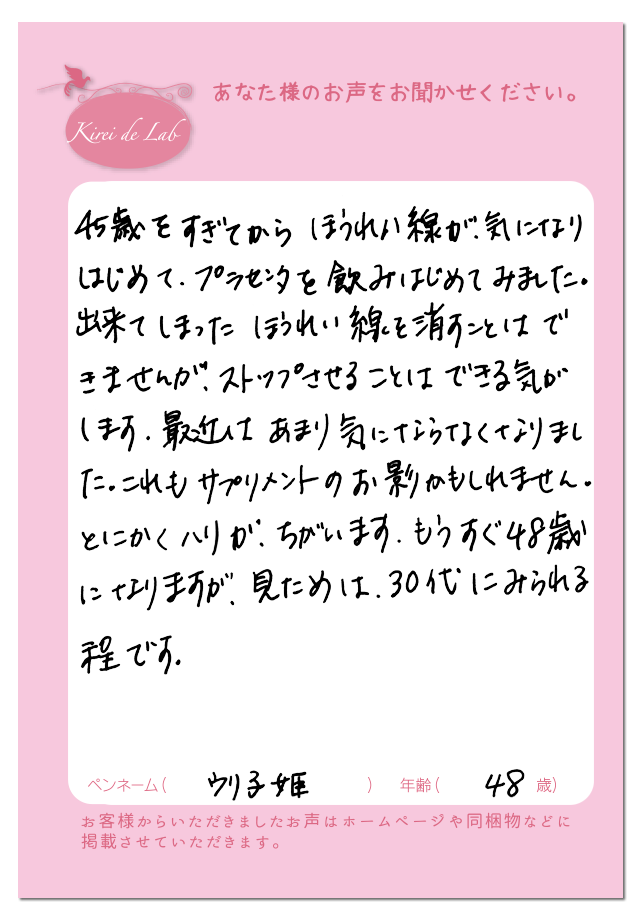 あなた様のお声をお聞かせください。
Kirei de Lab
45歳をすぎてから ほうれい線が、気になり
はじめて、プラセンタを飲みはじめてみました。
出来てしまった ほうれい線を消すことはで
きませんが、ストップさせることはできる気が
します。最近は あまり気にならなくなりまし
た。これもサプリメントのお影かもしれません。
とにかくハリが、ちがいます。もうすぐ48歳
になりますが、見ためは、30代にみられる
程です。
ペンネーム( ウリ子姫 ) 年齢( 48 歳)
お客様からいただきましたお声はホームページや同梱物などに
掲載させていただきます。